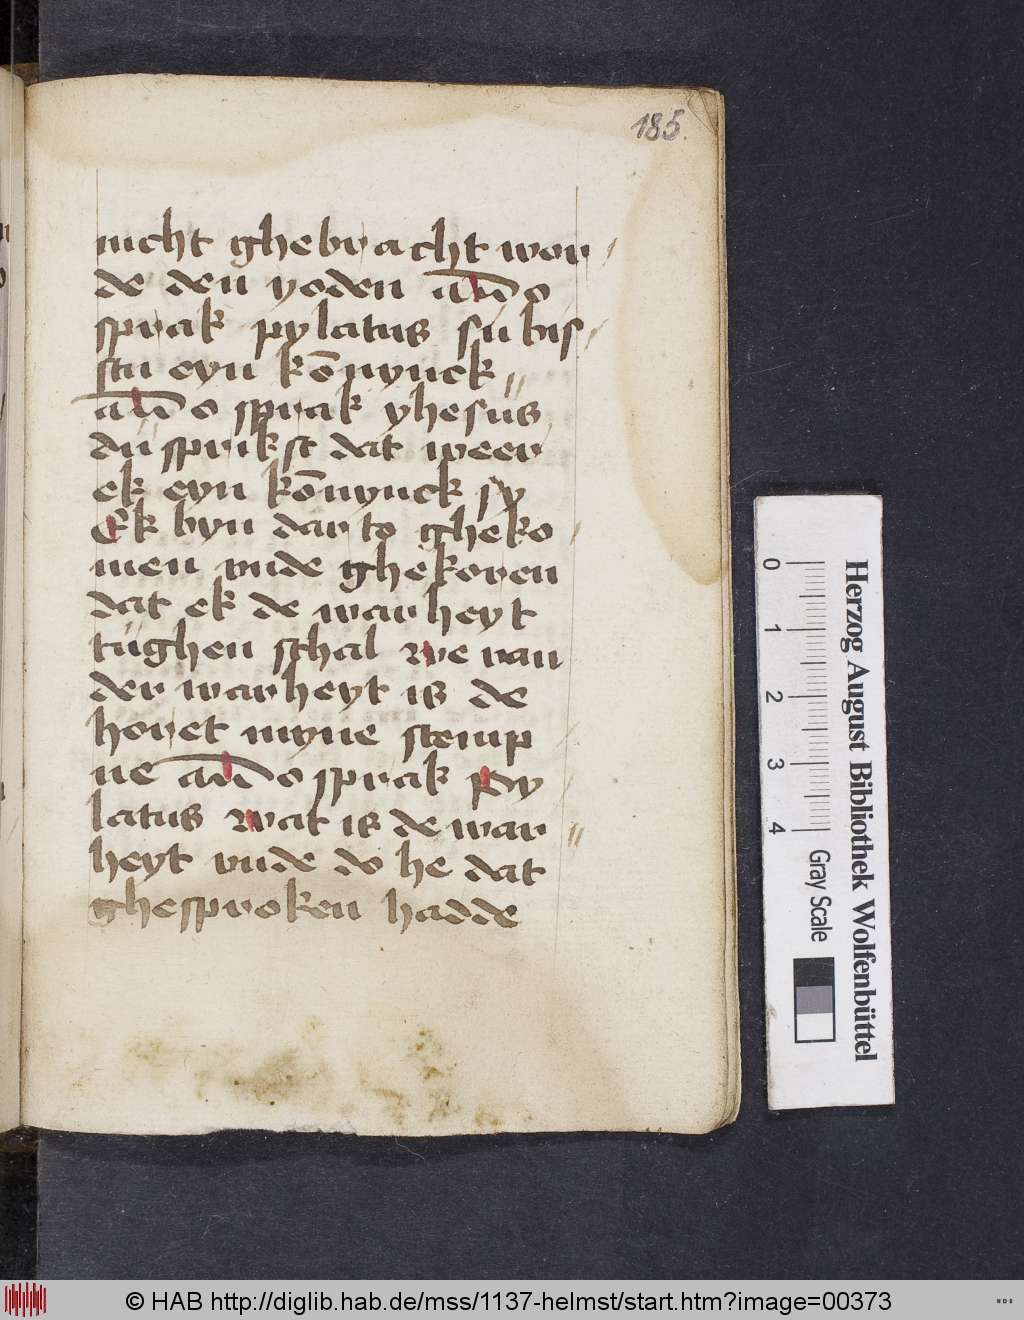 185.
nicht ghebracht wor
de den yoden ald̄o
sprak pylatus sū bis
stu eyn kōnynck
ald̄o sprak yhesus
du sprikst dat weer
ek eyn kōnynck sy
Ek byn dar to gheko
men vnde ghekoren
dat ek de warheyt
tughen schal we van
der warheyt is de
horet myne stemp
ne ald̄o sprak py
latus wat is de war
heyt vnde do he dat
ghesproken hadde
Herzog August Bibliothek Wolfenbüttel
0 1 2 3 4
Gray Scale
© HAB http://diglib.hab.de/mss/1137-helmst/start.htm?image=00373